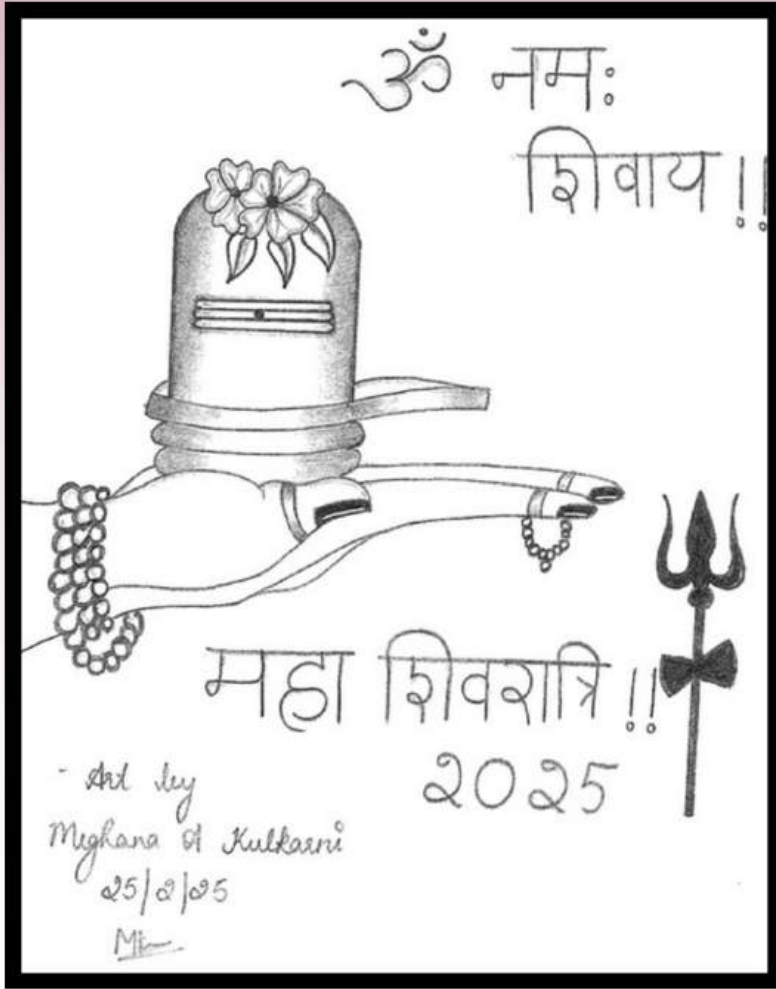 ॐ नमः
शिवाय !!
महा शिवरात्रि !!
2025
- Art by
Meghana A Kulkarni
25/2/25